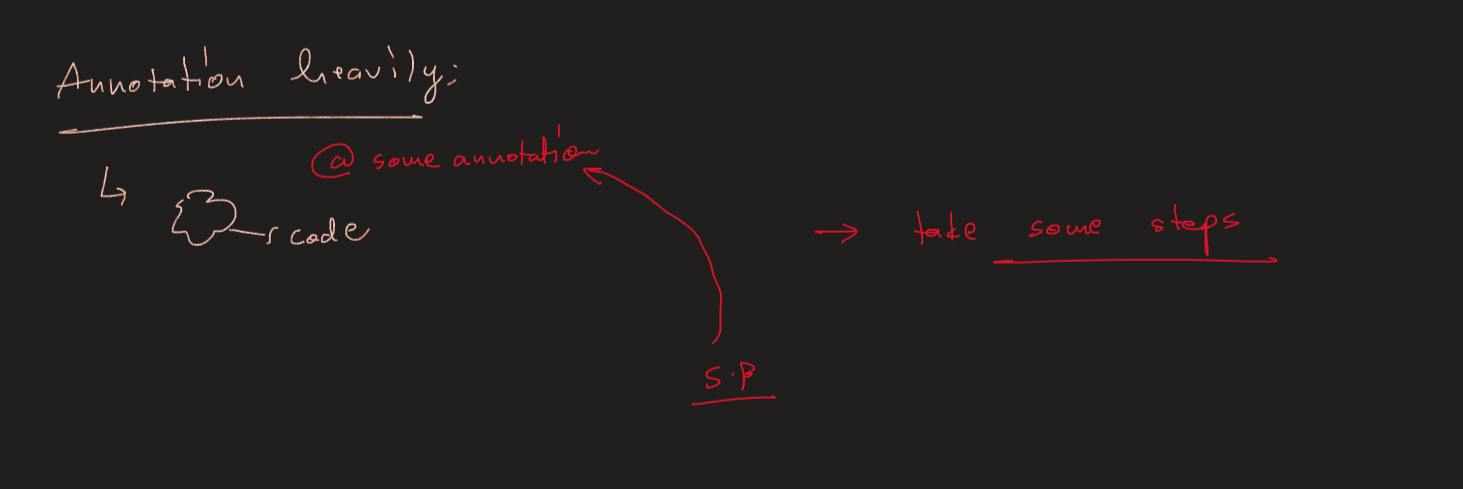 Annotation heavily:
@ some annotation
code
→ take some steps
S.B